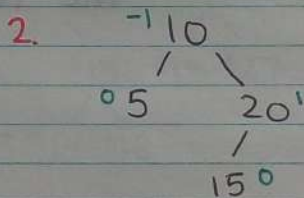 2.
-1 10
0 5 20 1
15 0